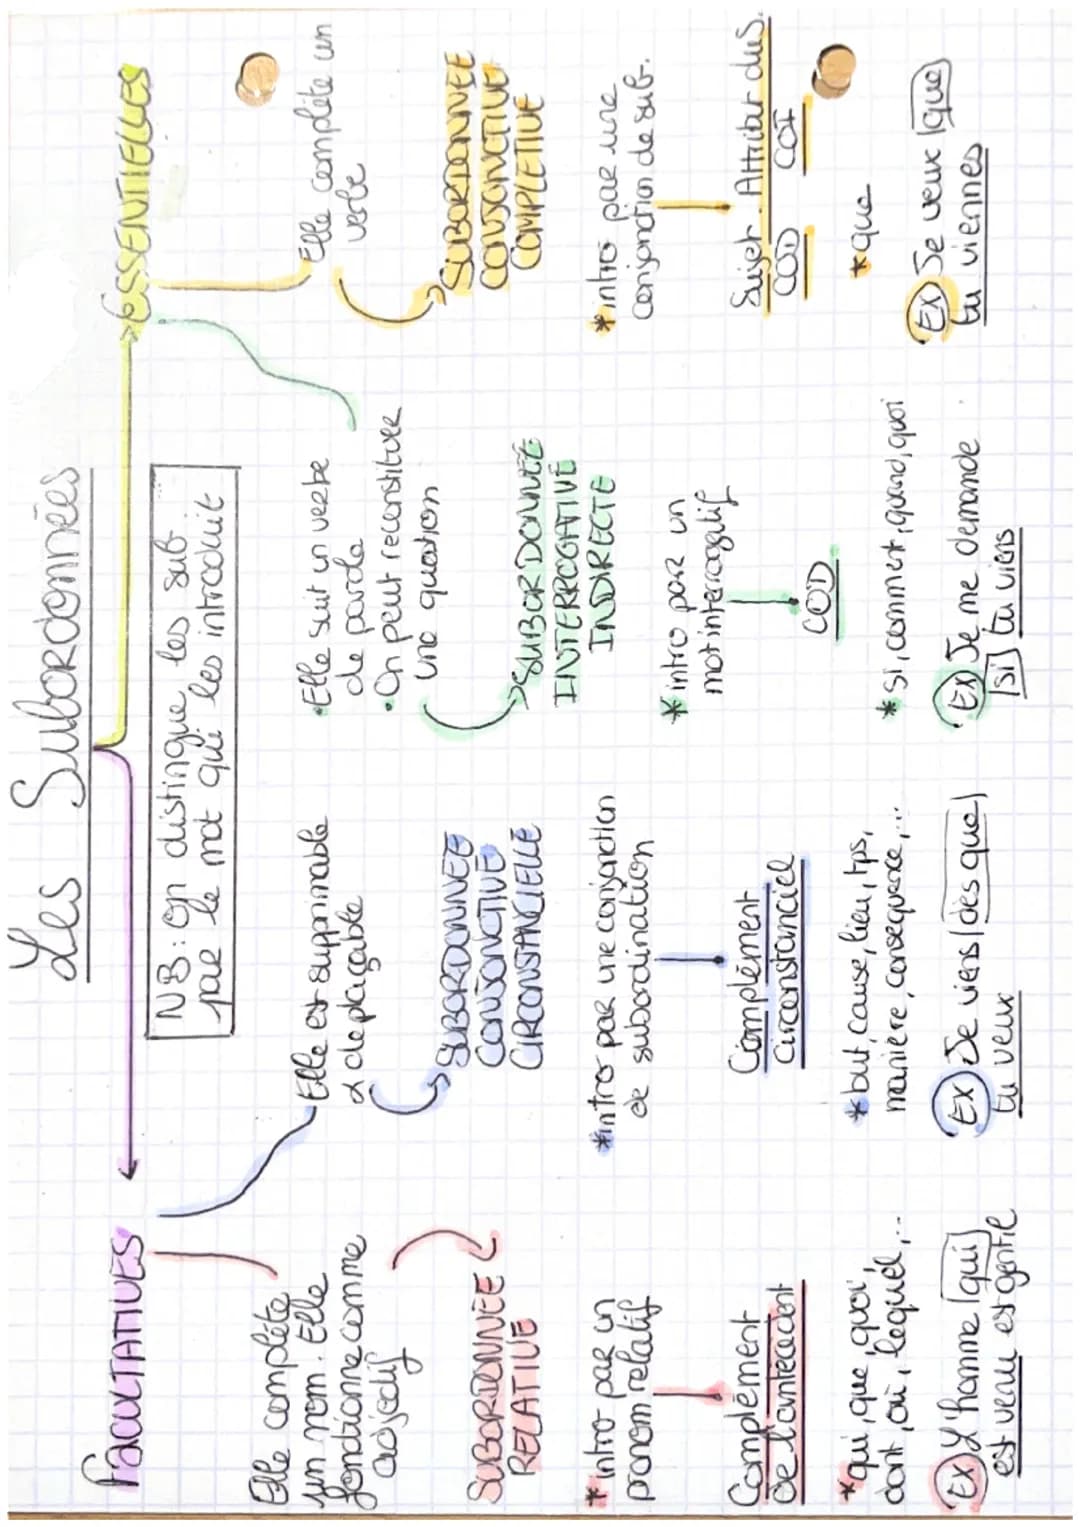 Les Subordonnées
FACULTATIVES
ESSENTIELLES
NB: On distingue les sub
par le mot qui les introduit
Elle complète
un nom. Elle
fonctionne comme
adjectif
SUBORDONNÉE
RELATIVE
* intro par un
pronom relatif
Complément
de l'antécédent
* qui, que, quoi,
dont, où, lequel,...
Ex L'homme qui
est venu est gentil
Elle est supprimable
& deplaçable
SUBORDONNÉE
CONJONCTIVE
CIRCONSTANCIELLE
*intro par une conjonction
de subordination
Complément
circonstanciel
* but, cause, lieu, tps,
manière, consequence,...
Ex Je viens dès que
tu veux
• Elle suit un verbe
de parole
• On peut reconstituer
une quation
SUBORDONNÉE
INTERROGATIVE
INDIRECTE
* intro par un
mot interrogatif
COD
* si, comment, quand, quoi
Ex Je me demande
si tu viens
Elle complète un
verbe
SUBORDONNÉE
CONJONCTIVE
COMPLÉTIVE
* intro par une
conjonction de sub.
Sujet. Attribut du S.
COD COI
* que
Ex Je veux que
tu viennes